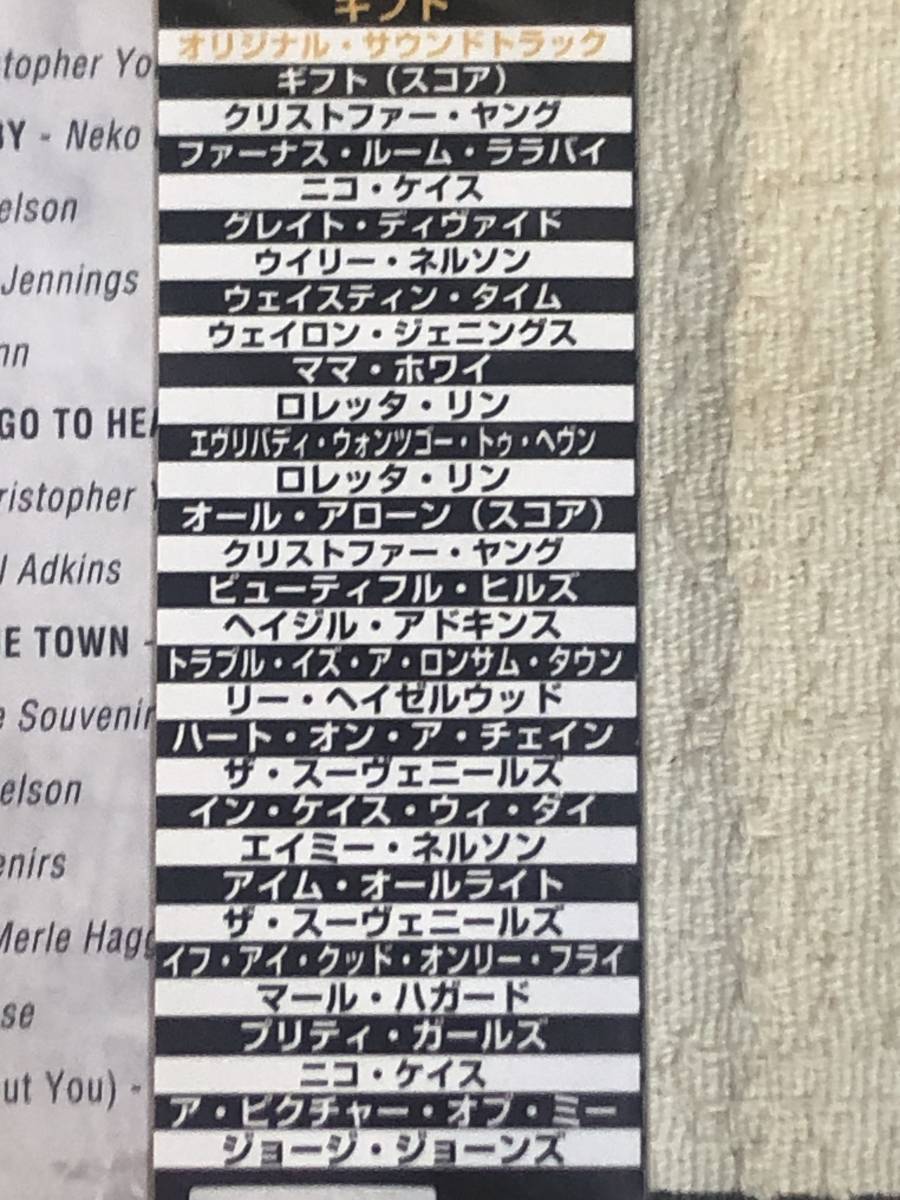 topher Yo
BY - Neko
elson
Jennings
nn
GO TO HEA
ristopher Y
l Adkins
E TOWN -
e Souvenir
elson
enirs
Merle Hagg
se
ut You) -
ギフト
オリジナル・サウンドトラック
ギフト（スコア）
クリストファー・ヤング
ファーナス・ルーム・ララバイ
ニコ・ケイス
グレイト・ディヴァイド
ウイリー・ネルソン
ウェイスティン・タイム
ウェイロン・ジェニングス
ママ・ホワイ
ロレッタ・リン
エヴリバディ・ウォンツゴー・トゥ・ヘヴン
ロレッタ・リン
オール・アローン（スコア）
クリストファー・ヤング
ビューティフル・ヒルズ
ヘイジル・アドキンス
トラブル・イズ・ア・ロンサム・タウン
リー・ヘイゼルウッド
ハート・オン・ア・チェイン
ザ・スーヴェニールズ
イン・ケイス・ウィ・ダイ
エイミー・ネルソン
アイム・オールライト
ザ・スーヴェニールズ
イフ・アイ・クッド・オンリー・フライ
マール・ハガード
プリティ・ガールズ
ニコ・ケイス
ア・ピクチャー・オブ・ミー
ジョージ・ジョーンズ